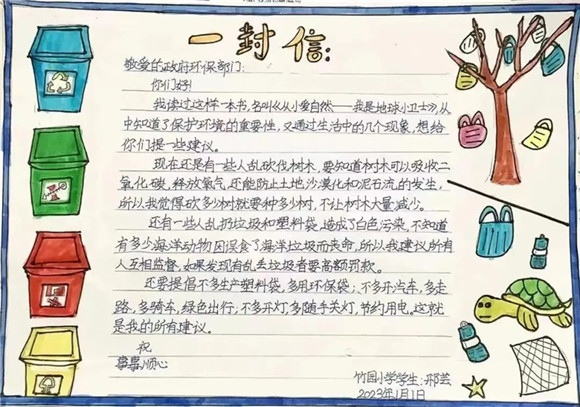 一封信：
敬爱的政府环保部门：
你们好！
我读过这样一本书，名叫《从小爱自然——我是地球小卫士》，从
中知道了保护环境的重要性，又通过生活中的几个现象，想给
你们提一些建议。
现在还是有一些人乱砍伐树木，要知道树木可以吸收二
氧化碳，释放氧气，还能防止土地沙漠化和泥石流的发生，
所以我觉得砍多少树就要种多少树，不让树木大量减少。
还有一些人乱扔垃圾和塑料袋，造成了白色污染，不知道
有多少海洋动物因误食了海洋垃圾而丧命，所以我建议所有
人互相监督，如果发现有乱丢垃圾者要高额罚款。
还要提倡不多生产塑料袋，多用环保袋；不多开汽车，多走
路，多骑车，绿色出行，不多开灯，多随手关灯，节约用电。这就
是我的所有建议。
祝
事事顺心
竹园小学学生：邢芸
2023年1月1日